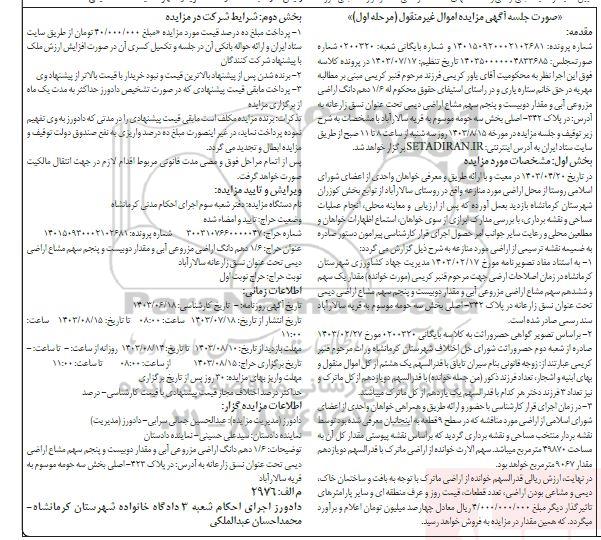 «صورت جلسه آگهی مزایده اموال غیرمنقول (مرحله اول)»
مقدمه:
شماره پرونده: ۱۴۰۱۵۰۹۲۰۰۰۲۱۰۲۶۸۱ و شماره بایگانی شعبه: ۰۲۰۰۳۲۰ شماره
صورتمجلس: ۱۴۰۳۵۰۰۰۰۰۴۸۳۲۶۸۵ تاریخ تنظیم: ۱۴۰۳/۰۷/۱۷ در پرونده کلاسه
فوق این اجرا نظر به محکومیت آقای یاور کریمی فرزند مرحوم قنبر کریمی مبنی بر مطالبه
مهریه در حق خانم ستاره یاری و در راستای استیفای حقوق محکوم له ۱/۶ دهم دانگ اراضی
مزروعی آبی و مقدار دویست و پنجم سهم مشاع اراضی دیمی تحت عنوان نسق زارعانه به
آدرس: در پلاک ۳۴۲- اصلی بخش سه حومه موسوم به قریه سالار آباد با مشخصات به شرح
زیر توقیف و جلسه مزایده در مورخه ۱۴۰۳/۸/۱۵ روز سه شنبه از ساعت ۸ تا ۱۱ صبح از طریق
سایت ستاد ایران به آدرس اینترنتی: SETADIRAN.IR برگزار خواهد شد.
بخش اول: مشخصات مورد مزایده
در تاریخ ۱۴۰۳/۰۴/۲۰ در معیت و با ارائه طریق و معرفی خواهان واحدی از اعضای شورای
اسلامی روستا از محل اراضی مورد منازعه واقع در روستای سالار آباد از توابع بخش کوزران
شهرستان کرمانشاه بازدید بعمل آورده که پس از ارزیابی و معاینه محلی، انجام عملیات
مساحی و نقشه برداری، با بررسی مدارک ابرازی از سوی خواهان، استماع اظهارات خواهان و
مطلعین محلی و رعایت سایر جوانب امر حصول اجرای قرار کارشناسی پیرامون دستور صادره
به ضمیمه نقشه ترسیمی از اراضی مورد منازعه به شرح ذیل گزارش می گردد:
۱- به استناد مفاد تصویر نامه مورخ ۱۴۰۳/۰۲/۱۷ مدیریت جهاد کشاورزی شهرستان
کرمانشاه در زمان اصلاحات ارضی جهت مرحوم قنبر کریمی (مورث خوانده) مقدار یک سهم
و ششدهم سهم مشاع اراضی مزروعی آبی و مقدار دویست و پنجم سهم مشاع اراضی دیمی
تحت عنوان نسق زارعانه در پلاک ۳۴۲- اصلی بخش سه حومه موسوم به قریه سالار آباد
سند رسمی صادر شده است.
۲- براساس تصویر گواهی حصروراثت به کلاسه بایگانی ۰۲۰۰۳۲۰ مورخ ۱۴۰۳/۰۲/۲۷
صادره از شعبه دوم حصر وراثت شورای حل اختلاف شهرستان کرمانشاه وراث مرحوم قنبر
کریمی عبارتند از: زوجه قانونی بنام سیران تایاق با قدرالسهم یک هشتم از کل اموال منقول و
بهای ابنیه و اشجار، تعداد فرزند ذکور (من جمله خوانده) با قدرالسهم دو یازدهم از کل ماترک و
نیز تعداد ۳ فرزند دختر هر کدام با قدرالسهم یک یازدهم از کل ماترک میباشند.
۳- در زمان اجرای قرار کارشناسی با حضور و ارائه طریق و همراهی خواهان واحدی از اعضای
شورای اسلامی از اراضی مورد مناقشه که در سطح ۹ قطعه به اینجانبان معرفی شده بود توسط
نقشه بردار منتخب مساحی و نقشه برداری گردید که براساس نقشه پیوستی مقدار کل آن به
مساحت ۴۹۸۷۰ مترمربع میباشد. سهم الارث خوانده از اراضی ماترک با قدرالسهم دو یازدهم
مقدار ۹۰۶۷ مترمربع خواهد بود.
در نهایت، ارزش ریالی قدرالسهم خوانده از اراضی ماترک با توجه به بافت و ساختمان خاک،
دیمی و مشاعی بودن اراضی، تعدد قطعات، قیمت روز و عرف منطقه ای و سایر پارامترهای
تاثیرگذار دیگر مبلغ ۴/۰۰۰/۰۰۰/۰۰۰ ریال معادل چهارصد میلیون تومان اعلام و برآورد
میگردد. که همین مقدار در مزایده به فروش خواهد رسید.
بخش دوم: شرایط شرکت در مزایده
۱- پرداخت مبلغ ده درصد قیمت مورد مزایده «مبلغ ۴۰/۰۰۰/۰۰۰ تومان از طریق سایت
ستاد ایران و ارائه حواله بانکی آن در جلسه و تکمیل کسری آن در صورت افزایش ارزش ملک
با پیشنهاد شرکت کنندگان
۲- برنده شدن پس از پیشنهاد بالاترین قیمت و نبود خریدار با قیمت بالاتر از پیشنهاد وی
۳- پرداخت مابقی قیمت پیشنهادی که در صورت تشخیص دادورز حداکثر به مدت یک ماه
از برگزاری مزایده
تذکرات: برنده مزایده مکلف است مابقی قیمت پیشنهادی را در مدتی که دادورز به وی تفهیم
نموده پرداخت نماید، در غیر اینصورت مبلغ ده درصد واریزی به نفع صندوق دولت توقیف و
مزایده ابطال و تجدید می گردد.
پس از اتمام مراحل فوق و مضی مدت قانونی مربوط اقدام لازم در جهت انتقال مالکیت
صورت خواهد گرفت.
ویرایش و تایید مزایده:
نام دستگاه مزایده: دفتر شعبه سوم اجرای احکام مدنی کرمانشاه
وضعیت حراج: تایید و امضاء شده
شماره حراج: ۳۰۰۳۱۰۷۶۶۰۰۰۰۰۴۷ شماره پرونده: ۱۴۰۱۵۰۹۳۰۰۰۳۱۰۲۶۸۱
عنوان حراج: ۱/۶ دهم دانگ اراضی مزروعی آبی و مقدار دویست و پنجم سهم مشاع اراضی
دیمی تحت عنوان نسق زارعانه سالار آباد
نوبت حراج: حراج نوبت اول
اطلاعات زمانی:
تاریخ آگهی روزنامه: - تاریخ کارشناسی: ۱۴۰۳/۰۶/۱۸
تاریخ انتشار از تاریخ: ۱۴۰۳/۰۷/۱۸ ساعت: ۰۸:۰۰ تا تاریخ: ۱۴۰۳/۰۸/۱۵ ساعت:
۱۱:۰۰
مهلت بازدید از تاریخ: ۱۴۰۳/۰۸/۱۰ تا تاریخ: ۱۴۰۳/۰۸/۱۴ روزانه از ساعت: - تا ساعت: -
تاریخ برگزاری حراج: ۱۴۰۳/۰۸/۱۵ از ساعت: ۰۸:۰۰ تا ساعت: ۱۱:۰۰
مهلت واریز بهای مزایده: ۳۰ روز پس از تاریخ برگزاری
حداکثر درصد اختلاف مجاز قیمت پیشنهادی با قیمت کارشناسی - درصد
اطلاعات مزایده گزار:
دادورز (مدیریت مزایده): عبدالحسین جمالی سرابی- دادورز (مدیریت)
نماینده دادستان: سیدعلی حسینی- نماینده دادستان
توضیحات: ۱/۶ دهم دانگ اراضی مزروعی آبی و مقدار دویست و پنجم سهم مشاع اراضی
دیمی تحت عنوان نسق زارعانه به آدرس: در پلاک ۳۴۲- اصلی بخش سه حومه موسوم به
قریه سالار آباد
م الف: ۲۹۷۶
دادورز اجرای احکام شعبه ۳ دادگاه خانواده شهرستان کرمانشاه -
محمداحسان عبدالملکی